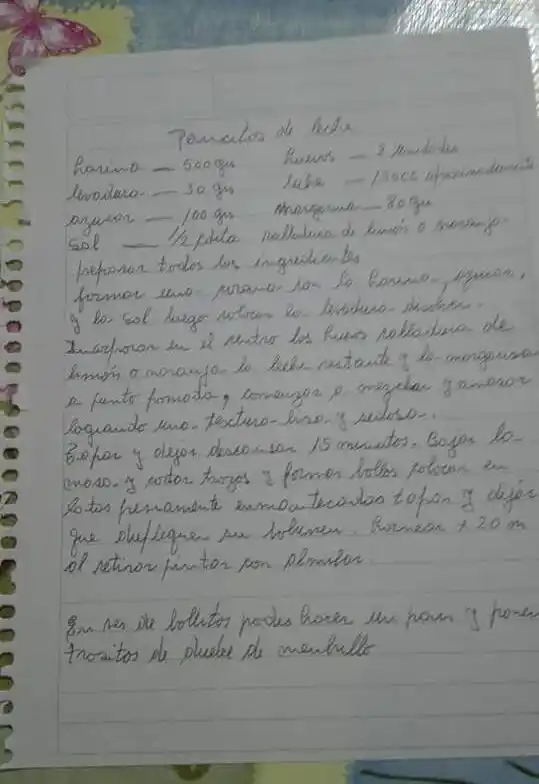 Pancitos de leche
harina — 500 grs huevos — 2 unidades
levadura — 30 grs leche — 150cc aproximadamente
azucar — 100 grs margarina — 80 grs
Sal — 1/2 cdita ralladura de limón o naranja.
preparar todos los ingredientes
formar una corona con la harina, azucar,
y la sal luego colocar la levadura disolver.
Incorporar en el centro los huevos ralladura de
limón o naranja la leche restante y la margarina
a punto pomada, comenzar a mezclar y amasar
logrando una textura lisa y sedosa.
Tapar y dejar descansar 15 minutos. Bajar la
masa y cortar trozos y formar bollos colocar en
latas previamente enmantecadas tapar y dejar
que dupliquen su volumen. Hornear x 20 m
al retirar pintar con almibar.
En ves de bollitos podes hacer un pan y poner
trositos de dulce de membrillo